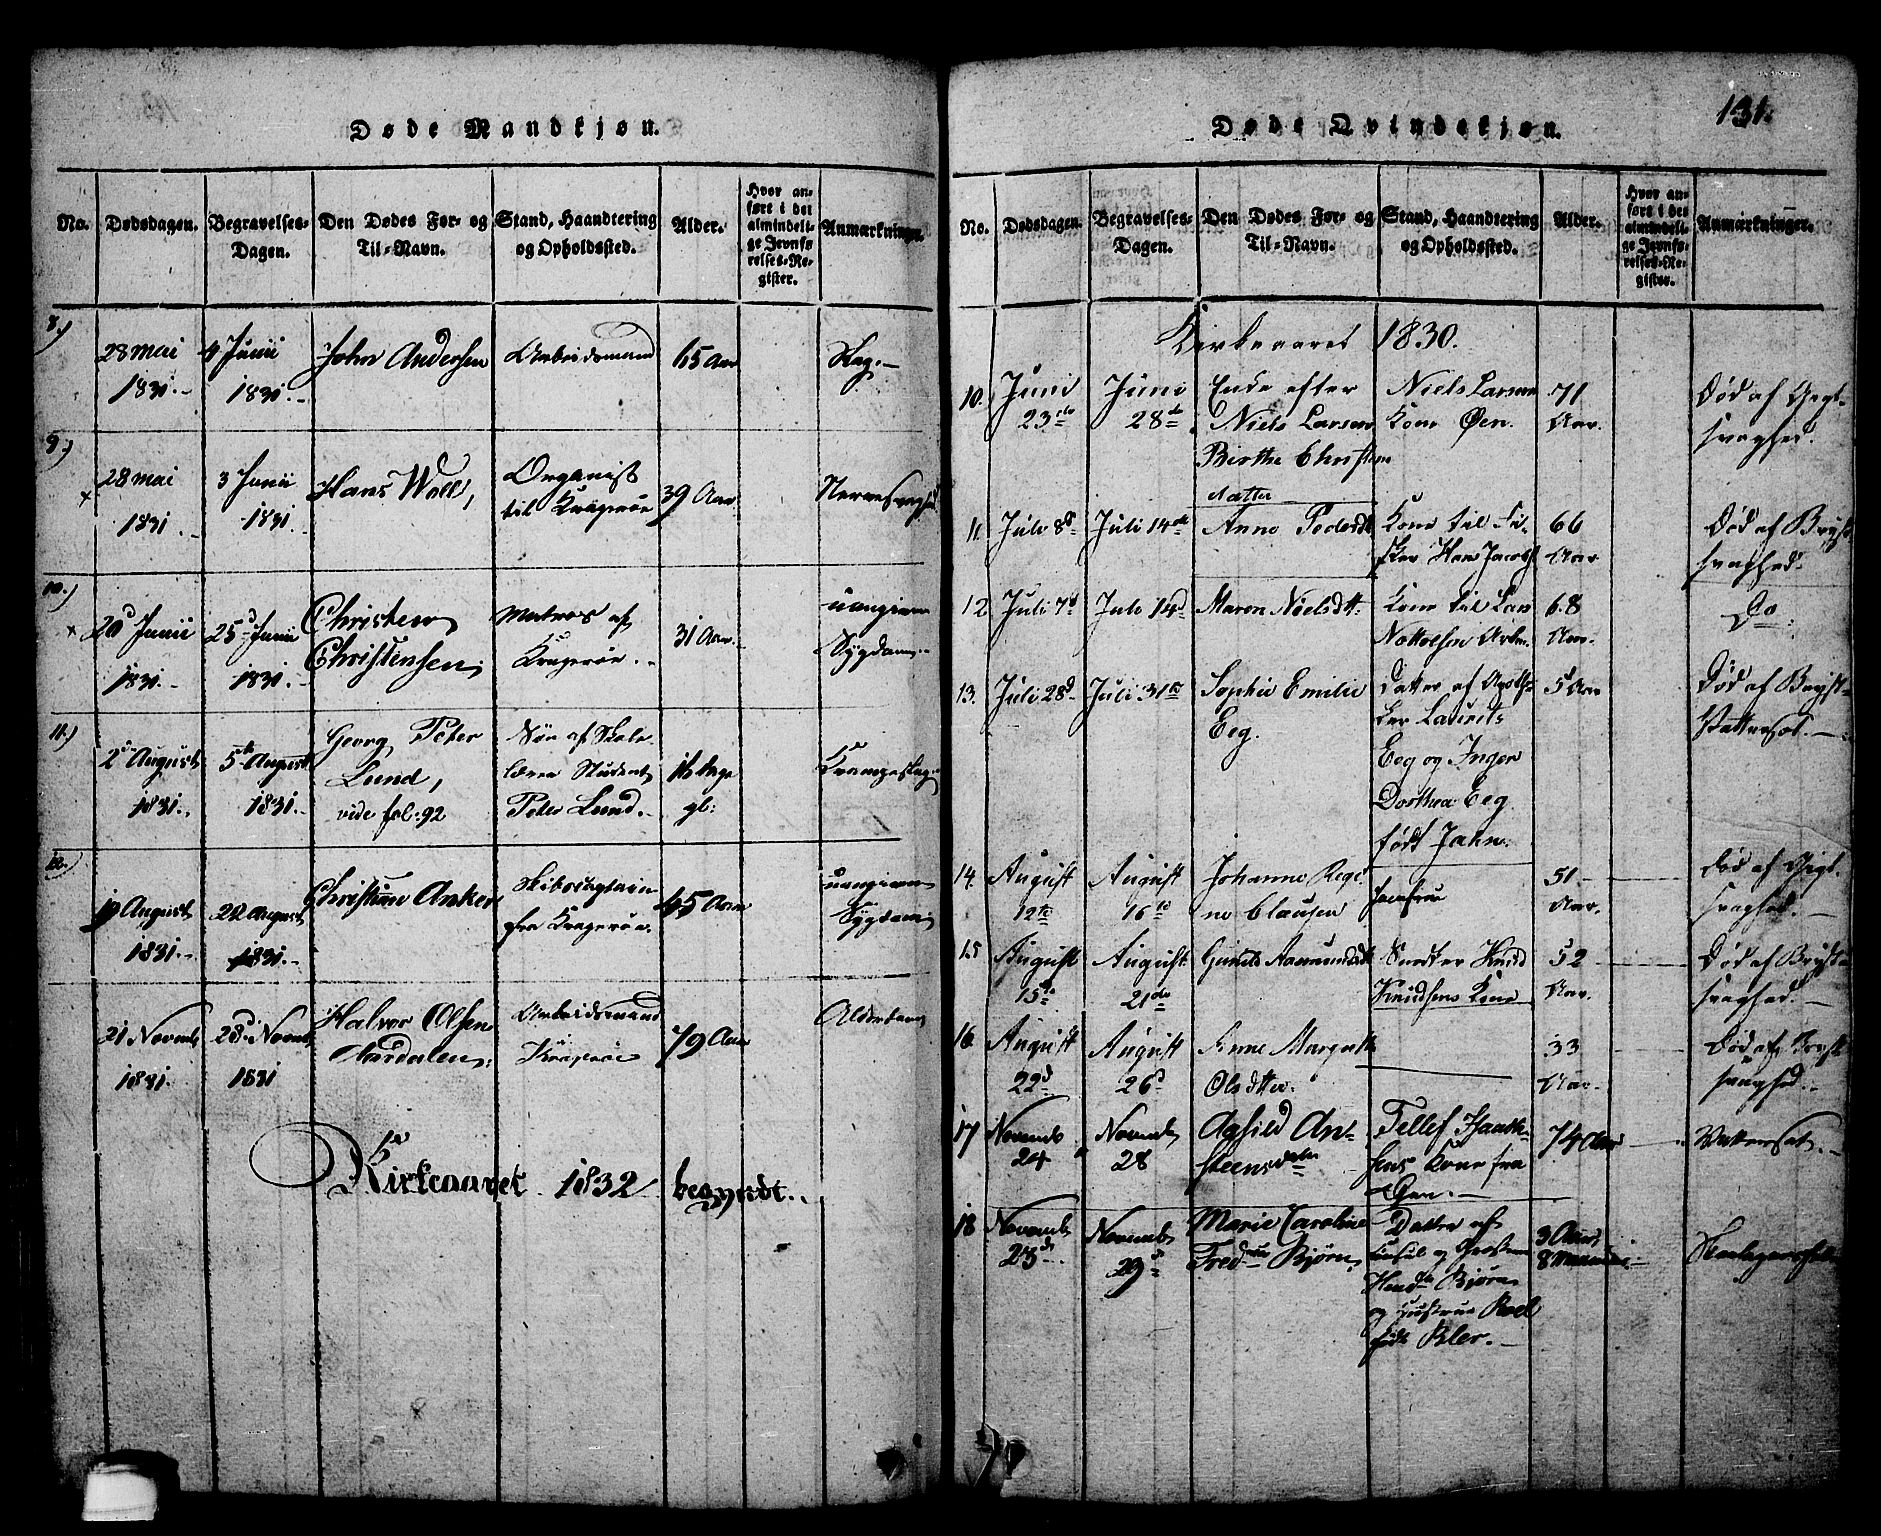 Døde Mandkjøn.
No.
Dødsdagen.
Begravelses-
Dagen.
Den Dødes For- og
Til-Navn.
Stand, Haandtering
og Opholdssted.
Alder.
Hvor an-
ført i det
almindeli-
ge Jevnfø-
relses-Re-
gister.
Anmærkninger.
8.)
28 Mai
1831.
4 Junii
1831.
John Andersen
Arbeidsmand
65 Aar
Slag.
9.)
28 Mai
1831.
3 Junii
1831.
Hans Woll,
Organist
til Kragerøe
39 Aar
Nervesvaghed
10.)
20d Junii
1831.
25d Junii
1831.
Christen
Christensen,
Matros af
Kragerøe.
31 Aar
uangiven
Sygdom.
11.)
2d August
1831.
5te August
1831.
Georg Peter
Lund,
vide fol: 92
Søn af Skole-
lærer Student
Peter Lund.
16 Dage
gl:
Krampeslag.
12.)
19 August
1831.
22 August
1831.
Christian Anker
Skibscaptain
fra Kragerøe.
45 Aar
uangiven
Sygdom
21 Novemb
1831.
28 Novemb
1831
Halvor Olsen
Aardalen,
Arbeidsmand
Kragerøe
79 Aar
Alderdom
Kirkeaaret 1832 begyndt.
131.
Døde Qvindekjøn.
No.
Dødsdagen.
Begravelses-
Dagen.
Den Dødes For- og
Til-Navn.
Stand, Haandtering
og Opholdssted.
Alder.
Hvor an-
ført i det
almindeli-
ge Jevnfø-
relses-Re-
gister.
Anmærkninger.
Kirkeaaret 1830.
10.
Juni
23de
Juni
28de
Enke efter
Niels Larsen
Birthe Christen
datter
Niels Larsen
Kone Øen.
71
Aar.
Død af Gigt-
svaghed.
11.
Juli 8d
Juli 14de
Anne Pedersdt
Kone til Fi-
sker Hans Jacobs
66
Aar
Død af Bryst
svaghed.
12
Juli 7d
Juli 14d
Maren Nielsdt.
Kone til Lars
68
Aar.
Do
13.
Juli 28d
Juli 31te
Sophie Emilie
Eeg.
Datter af Apothe-
ker Laurits
Eeg og Inger
Dorthea Eeg
født Jahn.
5 Aar
Død af Bryst-
Vattersot.
14.
August
12te
August
16te
Johanne Regi-
ne Clausen
Jomfrue
51
Aar.
Død af Gigt-
svaghed.
15
August
15de
August
21de
Gunild Aamundsdt
Knud
Knudsens Kone
52
Aar.
Død af Bryst-
svaghed.
16
August
22d
August
26d
Anne Margrethe
Olsdtter.
33
Aar.
Død af Bryst
svaghed.
17
Novemb
24
Novemb
28
Aasild An-
steensdatter
Tellef Hansen
Kone fra
Øen.
74 Aar
Vattersot.
18
Novemb
23d
Novemb
29d
Marie Caroline
Fredrikke Bjørn
Datter af
Consul og
Henrik Bjørn
og Hustrue
født Bler.
3 Aar
8 Maaneder